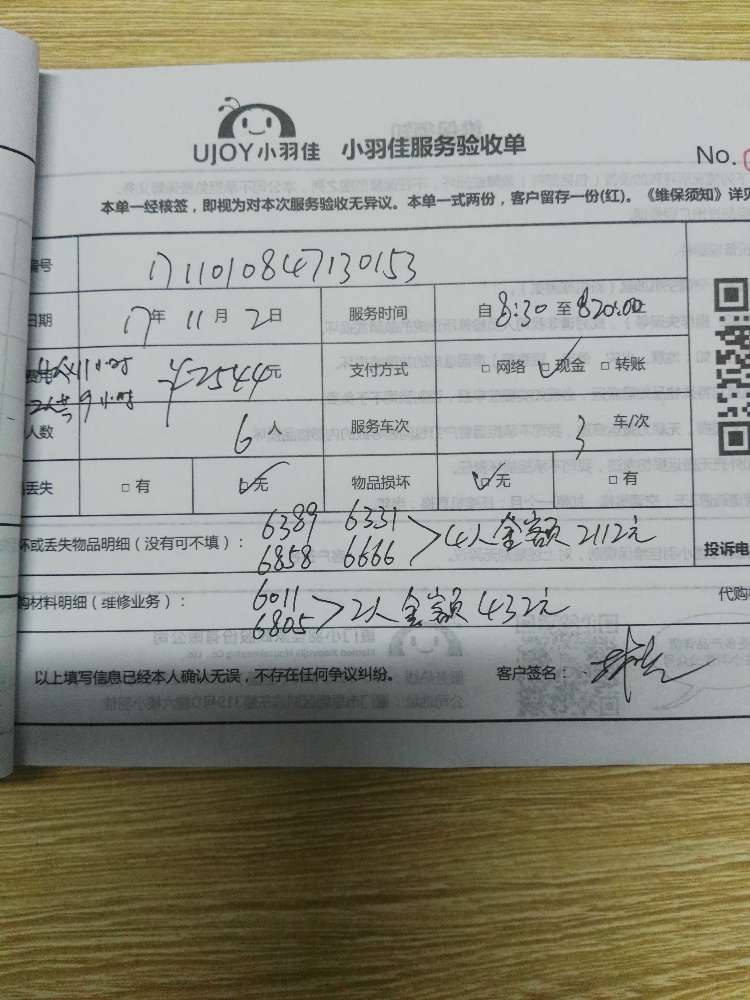 UJOY小羽佳 小羽佳服务验收单
No.
本单一经核签，即视为对本次服务验收无异议。本单一式两份，客户留存一份(红)。《维保须知》详见
编号 1711010847130153
日期 17年 11月 2日 服务时间 自8:30至20:00止
4人11小时
费用 ¥2544元 支付方式 □网络 ☑现金 □转账
2人共9小时
人数 6人 服务车次 3 车/次
丢失 □有 ☑无 物品损坏 ☑无 □有
6389 6331
坏或丢失物品明细（没有可不填）： >4人金额2112元
6858 6666
投诉电
6011
购材料明细（维修业务）： >2人金额432元
6805
代购
以上填写信息已经本人确认无误，不存在任何争议纠纷。 客户签名：